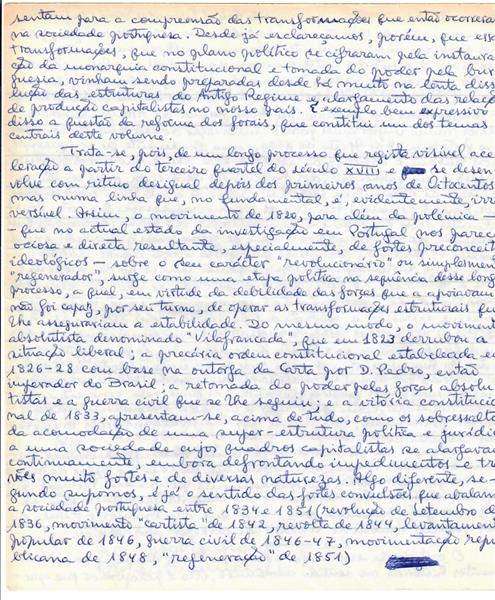 sentam para a compreensão das transformações que então ocorreram
na sociedade portuguesa. Desde já esclareçamos, porém, que essas
transformações, que no plano político se cifraram pela instaura
ção da monarquia constitucional e tomada do poder pela bur
guesia, vinham sendo preparadas desde há muito na lenta disso
lução das estruturas do Antigo Regime e alargamento das relaç
de produção capitalistas no nosso país. Exemplo bem expressivo
disso a questão da reforma dos forais, que constitui um dos temas
centrais deste volume.
Trata-se, pois, de um longo processo que regista visível ace
leração a partir do terceiro quartel do século XVIII e se desen
volve com ritmo desigual depois dos primeiros anos de Oitocentos
mas numa linha que, no fundamental, é, evidentemente, irre
versível. Assim, o movimento de 1820, para além da polémica —
— que no actual estado da investigação em Portugal nos parece
ociosa e directa resultante, especialmente, de fortes preconceit
ideológicos — sobre o seu carácter "revolucionário" ou simplesmen
"regenerador", surge como uma etapa política na sequência desse longo
processo, a qual, em virtude da debilidade das forças que a apoiavam
não foi capaz, por seu turno, de operar as transformações estruturais que
lhe assegurariam a estabilidade. Do mesmo modo, o movimen
absolutista denominado "Vilafrancada", que em 1823 derrubou a
situação liberal; a precária ordem constitucional estabelecida em
1826-28 com base na outorga da Carta por D. Pedro, então
imperador do Brasil; a retomada do poder pelas forças absolu
tistas e a guerra civil que se lhe seguiu; e a vitória constitucio
nal de 1833, apresentam-se, acima de tudo, como os sobressaltos
da acomodação de uma super-estrutura política e jurídic
a uma sociedade cujos quadros capitalistas se alargavam
continuamente, embora defrontando impedimentos e tra
vões muito fortes e de diversas naturezas. Algo diferente, se-
gundo supomos, é já o sentido das fortes convulsões que abalam
a sociedade portuguesa entre 1834 e 1851 (revolução de Setembro de
1836, movimento "cartista" de 1842, revolta de 1844, levantamento
popular de 1846, guerra civil de 1846-47, movimentação repu
blicana de 1848, "regeneração" de 1851)